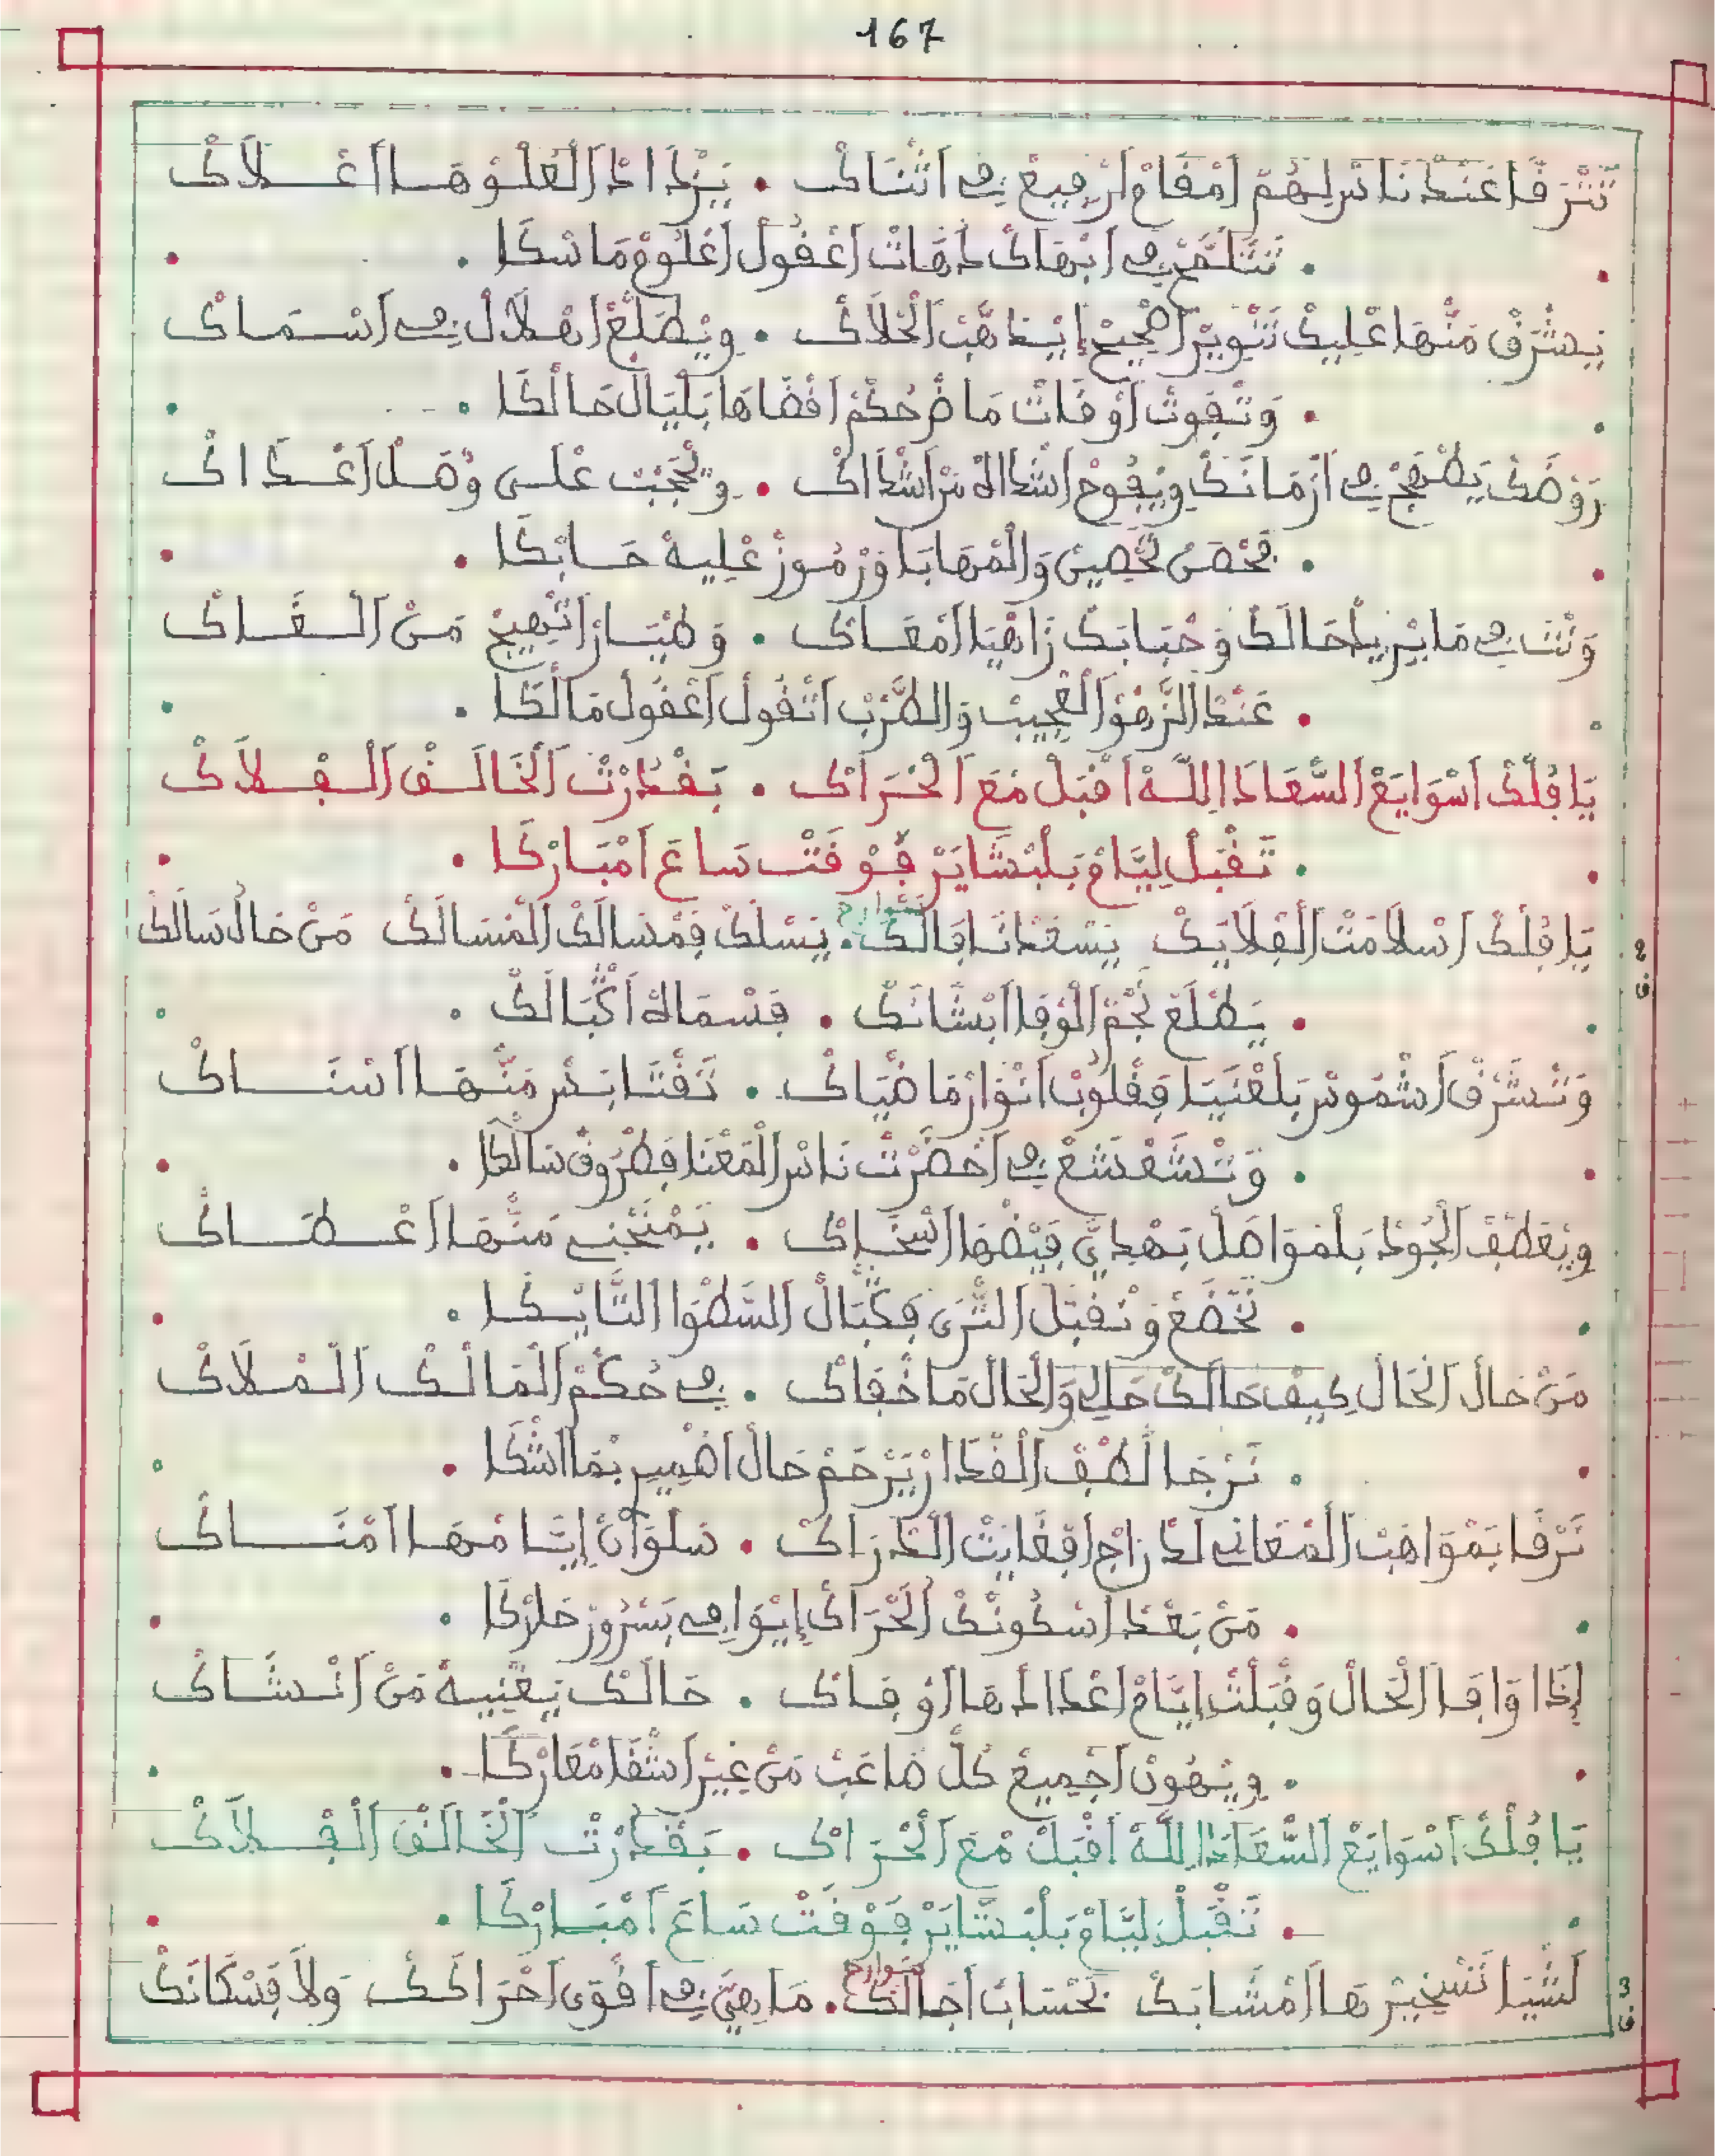 167
تَتْرَقَّا عَنْدْ نَاسْ لِهُمْ اَمْقَامْ اَرْفِيعْ فِي اَثْنَاكْ . يَزْدَادْ اَلْعُلُوّ هَا اَعْلَاكْ
. تَتْلَمَّحْ فِي اَبْهَاكْ دَهَاتْ اَعْقُولْ اَعْلُومْ مَاسْكَا .
يَشْرَقْ مَنْهَا عْلِيكْ تَنْوِيرْ اَلْهَجِيجْ اِيْدَاهَبْ اَلْحْلَاكْ . وِيْطَلَّعْ اَهْلَالْ فِي اَسْمَاكْ
. وَتْفُوتْ اَوْقَاتْ مَاضْ حُكْمْ اَقْضَاهَا بَلْيَالْ حَالْكَا .
رَوْضَكْ يَطْهَجْ فِي اَزْمَانَكْ وِيْفُوحْ اَشْدَاهْ مَنْ اَشْدَاكْ . وِيْحْجَبْ عْلَى وُهَلْ اَعْدَاكْ
. فَحْصَنْ حْصِينْ وَالْمْهَابَا وَرْمُوزْ عْلِيهْ حَابْكَا .
وَنْتَ فِي مَا يْرِيدْ حَالَكْ وَحْبَابَكْ زَاهْيَا اَمْعَاكْ . وَطْيَارْ اَتْهِيجْ مَنْ اَلْغَاكْ
. عَنْدْ اَلزَّهْوْ اَلْعْجِيبْ وَالطَّرْبْ اَتْقُولْ اَعْقُولْ مَالْكَا .
يَا فُلْكْ اَسْوَايَعْ اَلسَّعَادَا لِلَّهْ اَقْبَلْ مَعَ اَلْحْرَاكْ . بَقْدُرْتْ اَلْخَالَقْ اَلْفْلَاكْ
. تَقْبَلْ لِيَّامْ بَلْبْشَايَرْ فَوْقَتْ سَاعَ اَمْبَارْكَا .
يَا فُلْكْ اَسْلَامَتْ اَلْفْلَايَكْ يَسْعَدْنَا فَالَكْ . يَسْلَكْ فَمْسَالَكْ اَلْمْسَالَكْ مَنْ حَالْ سَالَكْ
سوارح
2
ف
. يَطْلَعْ نَجْمْ اَلْوْفَا اَبْشَانَكْ . فَسْمَاهْ اَكْبَالَكْ .
وَتْشَرَّقْ اَشْمُوسْ بَلْغْنَيَا فَقْلُوبْ اَنْوَارْهَا ضْيَاكْ . تَقْتَابَسْ مَنْهَا اَسْنَاكْ
. وَتْشَعْشَعْ فِي اَحْضَرْتْ نَاسْ اَلْمَعْنَا فَطْرُوقْ سَالْكَا .
وِيْعَطَّفْ اَلْجُودْ بَلْمْوَاصَلْ بَهْدِيَّ فَيْضْهَا اَسْخَاكْ . يَمْنَحْنِي مَنْهَا اَعْطَاكْ
. نَخْضَعْ وَنْقَبَّلْ اَلثْرَى فَكْبَالْ اَلسَّطْوَا اَلتَّايْكَا .
مَنْ حَالْ اَلْحَالْ كِيفْ حَالَكْ حَالِي وَالْحَالْ مَا خْفَاكْ . فِي حُكْمْ اَلْمَالَكْ اَلْمْلَاكْ
. نَرْجَا لُطْفْ اَلْقَدَّارْ يَرْحَمْ حَالْ اَضْمِيرْ بْمَا اَشْكَا .
نَرْقَا بَمْوَاهَبْ اَلْمْعَانِي لَدْرَاجْ اَفْغَايَتْ اَلْدْرَاكْ . سَلْوَانْ اِيَّامْهَا اَمْنَاكْ
. مَنْ بَعْدْ اَسْكُونَكْ اَلْحْرَاكْ اِيْوَافِي بَسْرُورْ حَارْكَا .
اِذَا وَافَا اَلْحَالْ وَقْبَلْتْ اِيَّامْ اَعْدَادْهَا اَوْفَاكْ . حَالَكْ تَغْنِيهْ مَنْ اَنْشَاكْ
. وِيْهُونْ اَجْمِيعْ كُلّْ صَاعَبْ مَنْ غِيرْ اَشْقَا مْعَارْكَا .
يَا فُلْكْ اَسْوَايَعْ اَلسَّعَادَا لِلَّهْ اَقْبَلْ مْعَ اَلْحْرَاكْ . بَقْدُرْتْ اَلْخَالَقْ اَلْفْلَاكْ
. تَقْبَلْ لِيَّامْ بَلْبْشَايَرْ فَوْقَتْ سَاعَ اَمْبَارْكَا .
لَشْيَا تَسْخِيرْهَا اَمْشَابَكْ بَحْسَابْ اَجَالَكْ . مَا هِيَّ فِي اَقْوَى اَحْرَاكَكْ وَلَا فَسْكَانَكْ
سوارح
3
ف